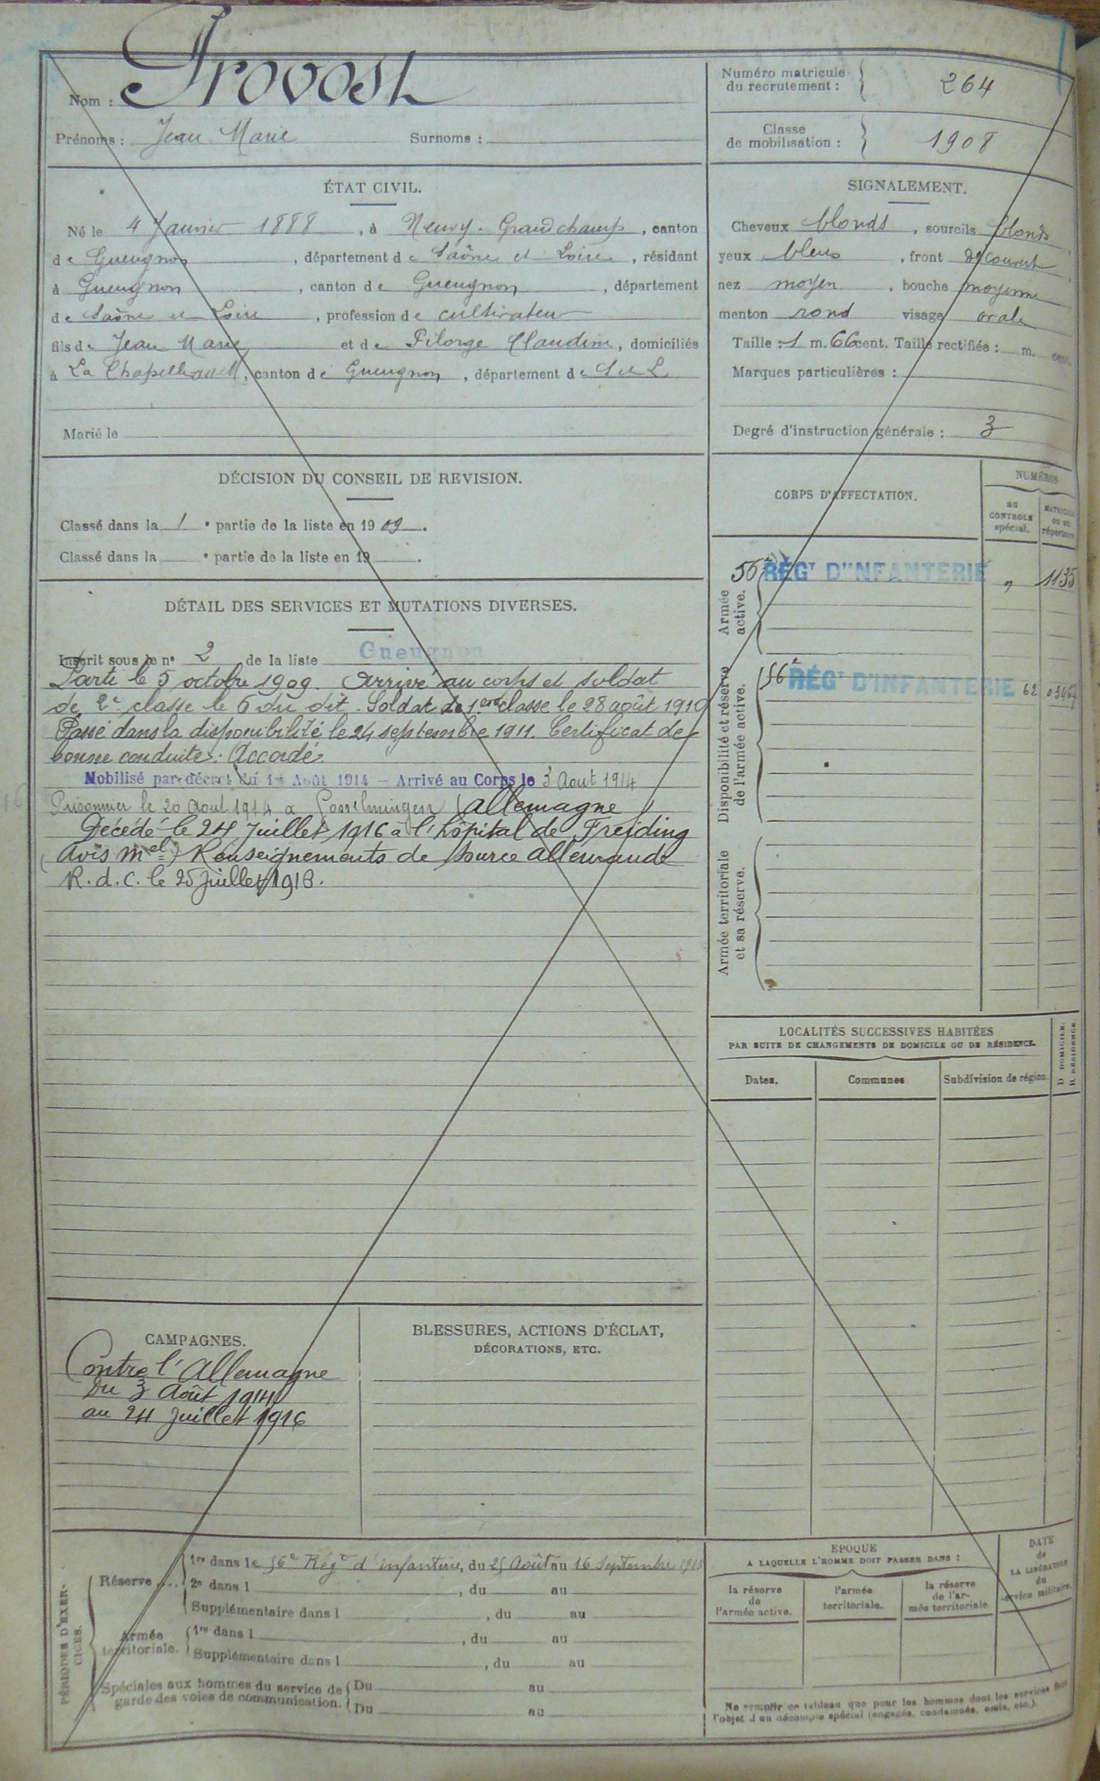 Nom : Provost
Prénoms : Jean Marie Surnoms :
Numéro matricule du recrutement : 264
Classe de mobilisation : 1908
ÉTAT CIVIL.
Né le 4 Janvier 1888, à Neuvy-Grandchamp, canton
de Gueugnon, département de Saône et Loire, résidant
à Gueugnon, canton de Gueugnon, département
de Saône et Loire, profession de cultivateur
fils de Jean Marie et de Pilorge Claudine, domiciliés
à La Chapelle au M, canton de Gueugnon, département de S et L
Marié le
SIGNALEMENT.
Cheveux blonds, sourcils blonds
yeux bleus, front découvert
nez moyen, bouche moyenne
menton rond visage ovale
Taille : 1 m. 66 cent. Taille rectifiée : m. cent.
Marques particulières :
Degré d'instruction générale : 3
DÉCISION DU CONSEIL DE REVISION.
Classé dans la 1e partie de la liste en 1909.
Classé dans la e partie de la liste en 19 .
DÉTAIL DES SERVICES ET MUTATIONS DIVERSES.
Inscrit sous le n° 2 de la liste Gueugnon
Parti le 5 octobre 1909. Arrivé au corps et soldat
de 2e classe le 6 du dit. Soldat de 1ere classe le 28 août 1910
Passé dans la disponibilité le 24 septembre 1911. Certificat de
bonne conduite : Accordé
Mobilisé par décret du 1er Août 1914 — Arrivé au Corps le 3 Aout 1914
Prisonnier le 20 Aout 1914 a Gosselmingen (Allemagne)
Décédé le 24 Juillet 1916 à l'hôpital de Freiding
(avis mel) Renseignements de source allemande
R.d.C. le 25 juillet 1918.
CORPS D'AFFECTATION.
NUMÉROS
AU CONTROLE spécial.
MATRICULE OU AU répertoire
Armée active.
56e RÉGT D'INFANTERIE " 1135
Disponibilité et réserve de l'armée active.
56e RÉGT D'INFANTERIE 62
Armée territoriale et sa réserve.
LOCALITÉS SUCCESSIVES HABITÉES
PAR SUITE DE CHANGEMENTS DE DOMICILE OU DE RÉSIDENCE.
Dates. Communes Subdivision de région.
D DOMICILE.
R RÉSIDENCE
CAMPAGNES.
Contre l'Allemagne
Du 3 Août 1914
au 24 Juillet 1916
BLESSURES, ACTIONS D'ÉCLAT,
DÉCORATIONS, ETC.
PÉRIODES D'EXERCICES.
Réserve
1re dans le 56e Régt d'infanterie, du 25 Août au 16 Septembre
2e dans l , du au
Supplémentaire dans l , du au
Armée territoriale.
1re dans l , du au
Supplémentaire dans l , du au
Spéciales aux hommes du service de garde des voies de communication.
Du au
Du au
EPOQUE
A LAQUELLE L'HOMME DOIT PASSER DANS :
la réserve de l'armée active.
l'armée territoriale.
la réserve de l'armée territoriale
DATE de LA LIBÉRATION du service militaire.
Ne remplir ce tableau que pour les hommes dont les services font
l'objet d'un décompte spécial (engagés, condamnés, omis, etc.).